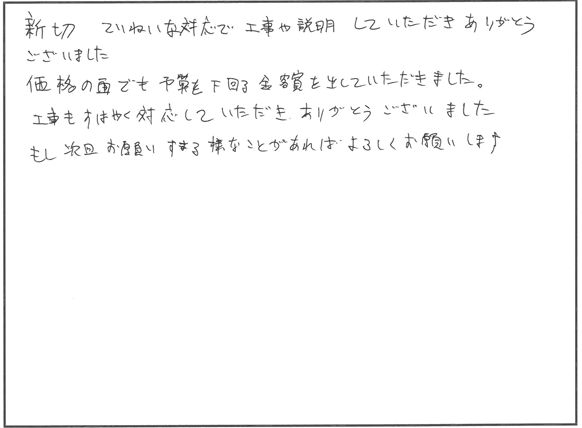 新切 ていねいな対応で 工事や説明 していただき ありがとう
ございました
価格の面でも 予算を下回る金額を出していただきました。
工事もすばやく対応していただき、ありがとうございました
もし 次回 お願い する様なことがあれば よろしくお願いします